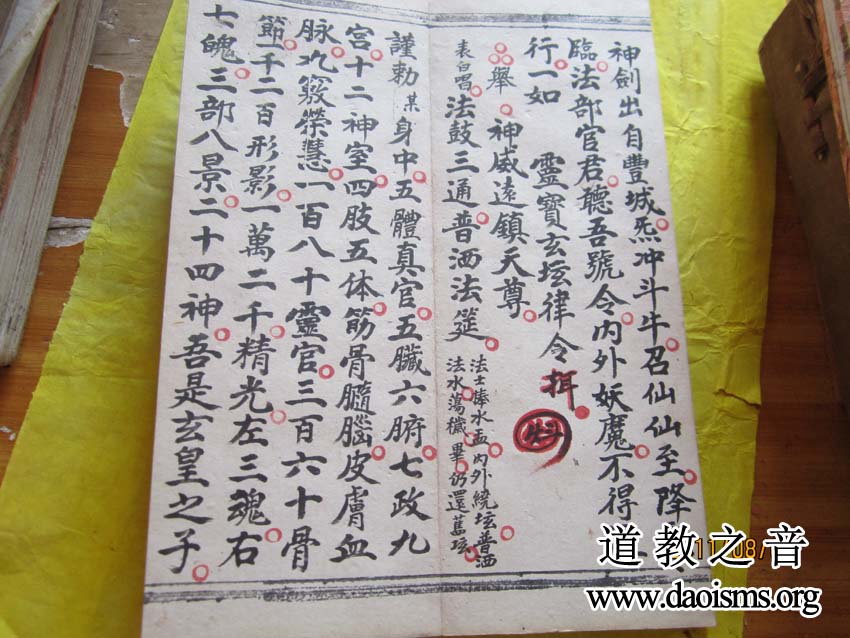 神劍出自豐城。炁冲斗牛。召仙仙至。降
臨。法部官君。聽吾號令。內外妖魔。不得
行一如　靈寶玄坛律令。揖。
舉。神威遠鎮天尊。
表白唱。法鼓三通。普洒法筵。法士捧水盂。內外繞坛普洒。
法水蕩穢。畢。仍還舊坛。
謹勅某身中五體真官。五臟六腑。七政九
宮。十二神室。四肢五体。筋骨髓腦。皮膚血
脉。九竅榮慧。一百八十靈官。三百六十骨
節。一千二百形影。一萬二千精光。左三魂。右
七魄。三部八景。二十四神。吾是玄皇之子。
道教之音
www.daoisms.org